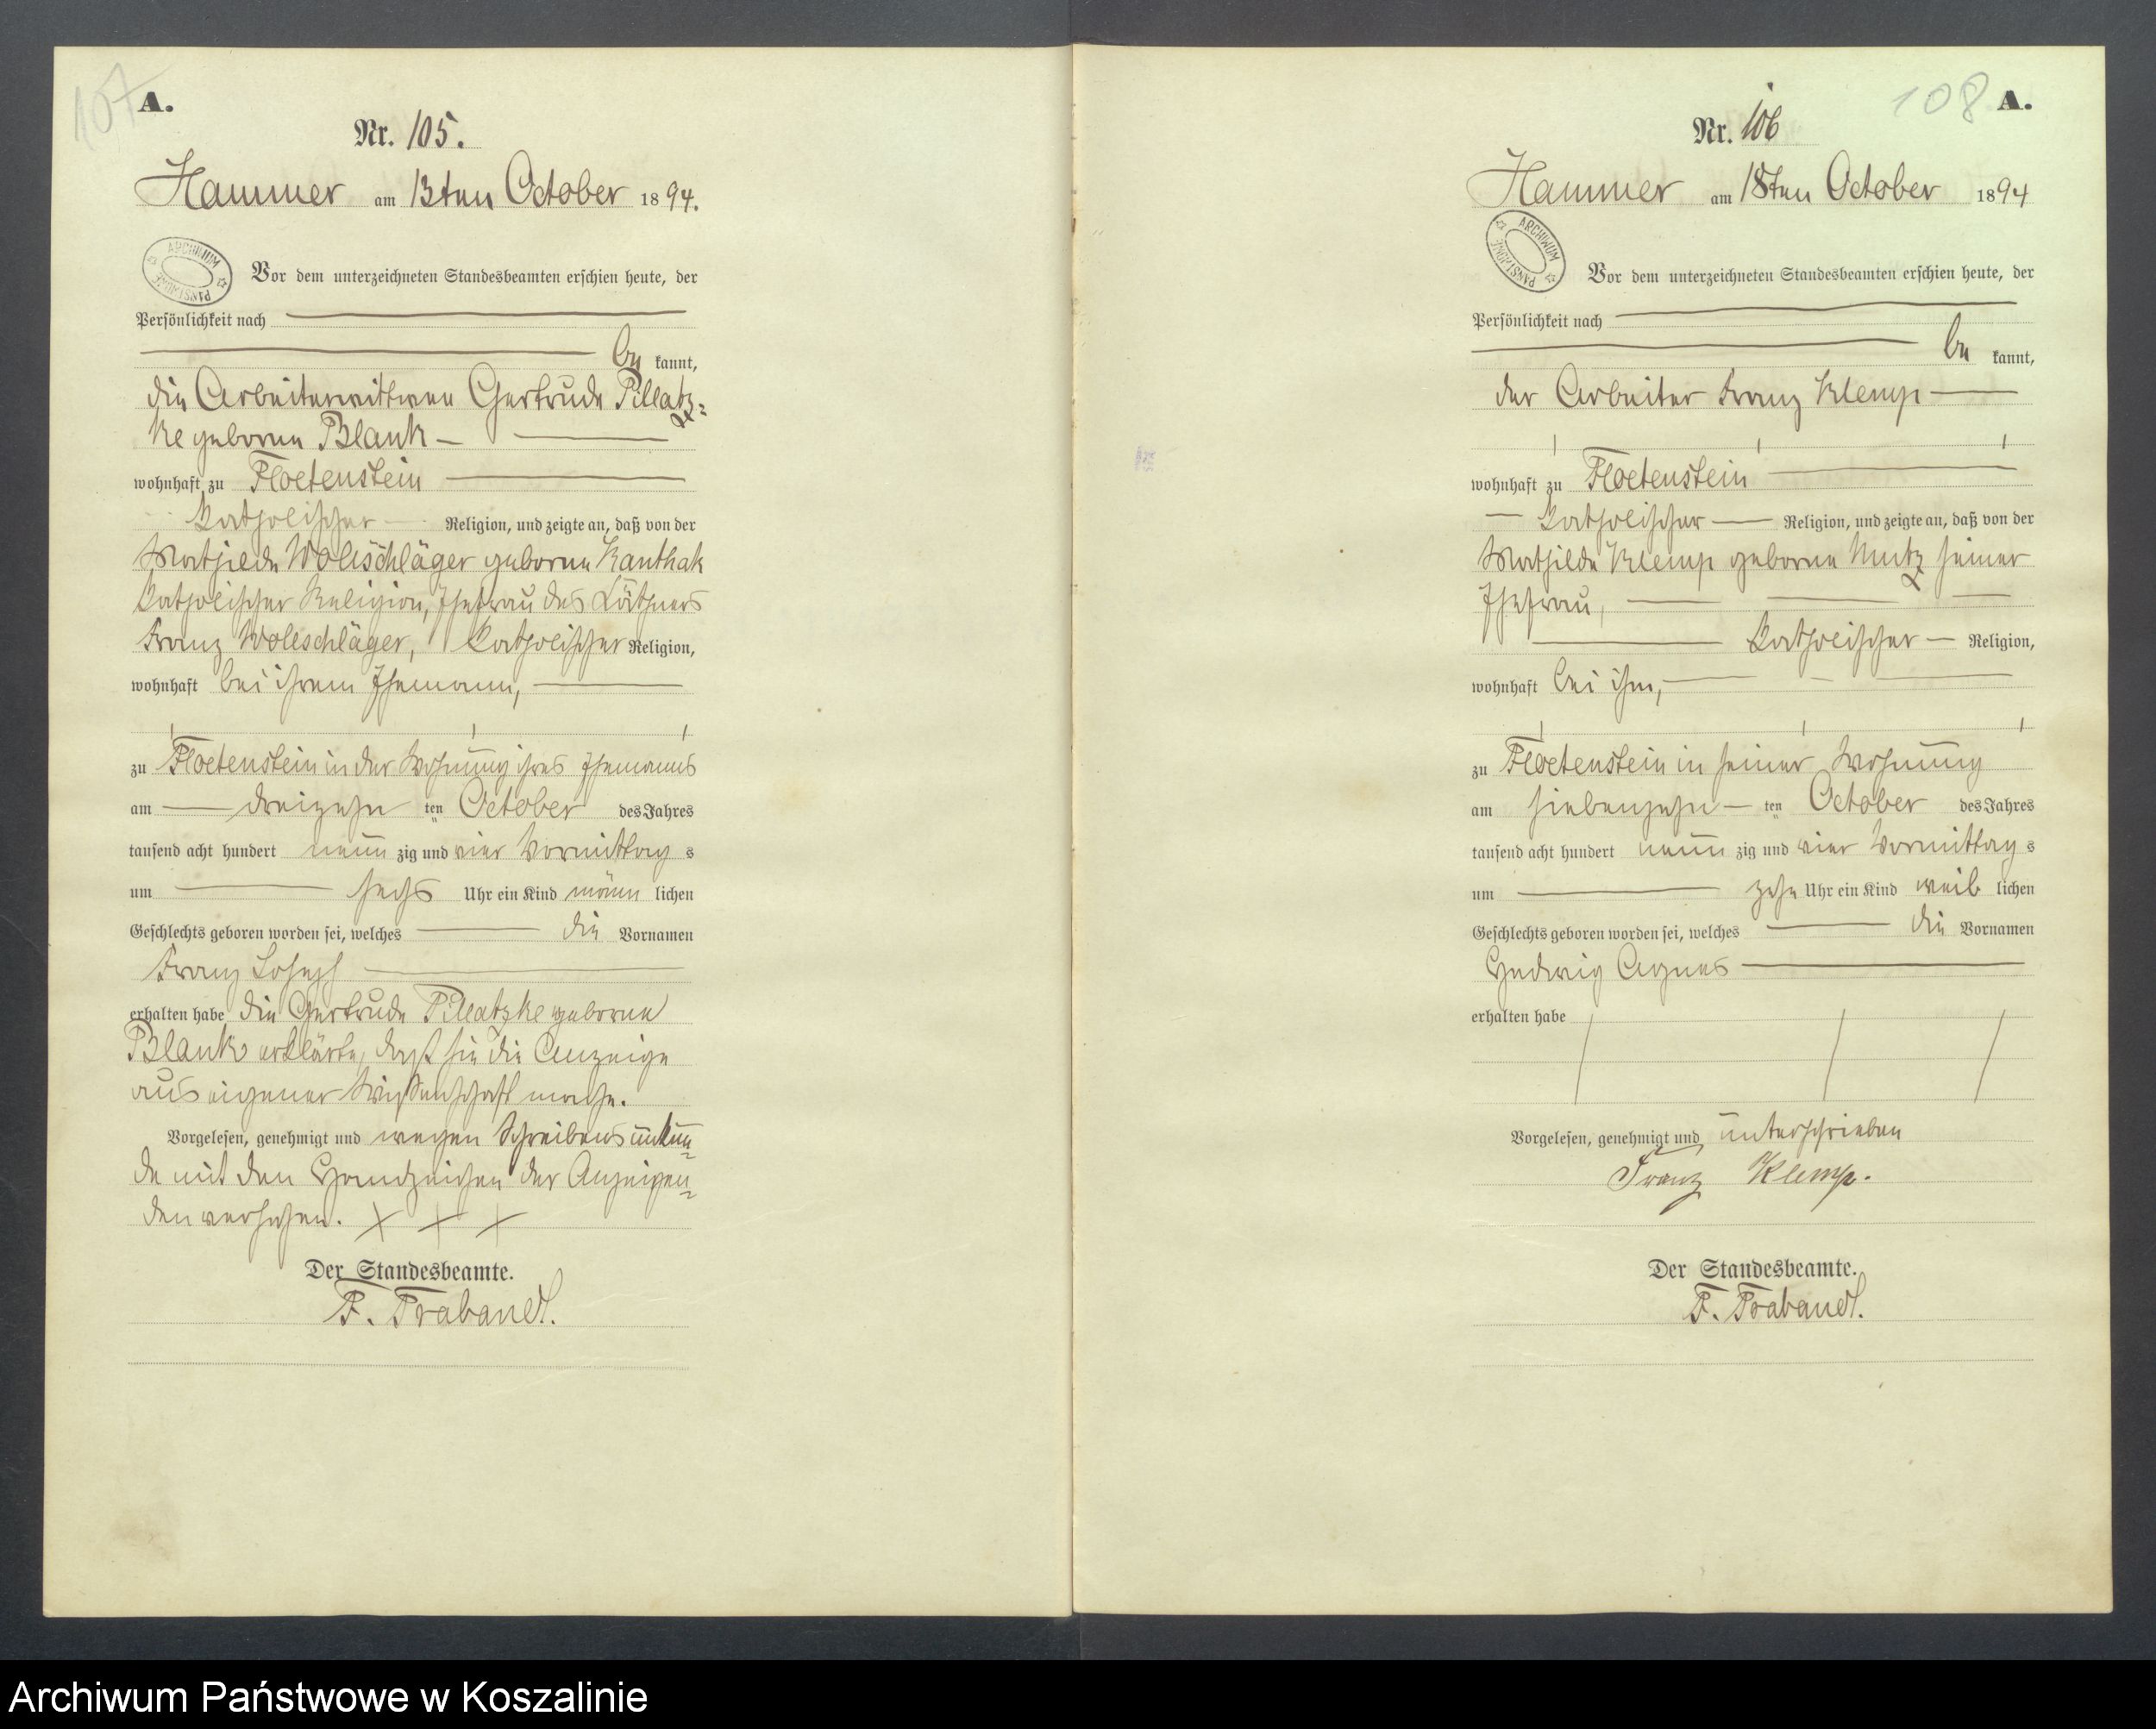 107
A.
Nr. 105.
Hammer am 13ten October 1894.
ARCHIWUM PAŃSTWOWE
Vor dem unterzeichneten Standesbeamten erschien heute, der
Persönlichkeit nach
be kannt,
die Arbeiterwittwe Gertrude Pillatz-
ke geborene Blank
wohnhaft zu Floetenstein
katholischer Religion, und zeigte an, daß von der
Mathilde Wollschläger geborne Kanthak
katholischer Religion, Ehefrau des Käthners
Franz Wollschläger, katholischer Religion,
wohnhaft bei ihrem Ehemann,
zu Floetenstein in der Wohnung ihres Ehemanns
am dreizehn ten October des Jahres
tausend acht hundert neun zig und vier Vormittag s
um sechs Uhr ein Kind männ lichen
Geschlechts geboren worden sei, welches die Vornamen
Franz Joseph
erhalten habe die Gertrude Pillatzke geborne
Blank erklärte, daß sie die Anzeige
aus eigener Wissenschaft mache.
Vorgelesen, genehmigt und wegen Schreibensunkun-
de mit den Handzeichen der Anzeigen-
den versehen. X X X
Der Standesbeamte.
F. Trabandt.
108
A.
Nr. 106
Hammer am 18ten October 1894
ARCHIWUM PAŃSTWOWE
Vor dem unterzeichneten Standesbeamten erschien heute, der
Persönlichkeit nach
be kannt,
der Arbeiter Franz Klemp
wohnhaft zu Floetenstein
katholischer Religion, und zeigte an, daß von der
Mathilde Klemp geborne Mutz seiner
Ehefrau,
katholischer Religion,
wohnhaft bei ihm,
zu Floetenstein in seiner Wohnung
am siebenzehn ten October des Jahres
tausend acht hundert neun zig und vier Vormittag s
um zehn Uhr ein Kind weib lichen
Geschlechts geboren worden sei, welches die Vornamen
Hedwig Agnes
erhalten habe
Vorgelesen, genehmigt und unterschrieben
Franz Klemp.
Der Standesbeamte.
F. Trabandt.
Archiwum Państwowe w Koszalinie